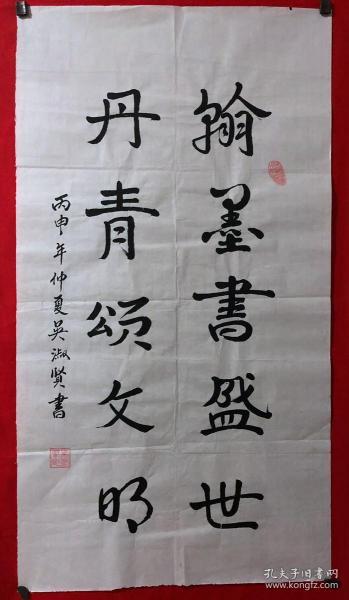 翰墨書盛世
丹青頌文明
丙申年仲夏吴淑贤書
孔夫子旧书网